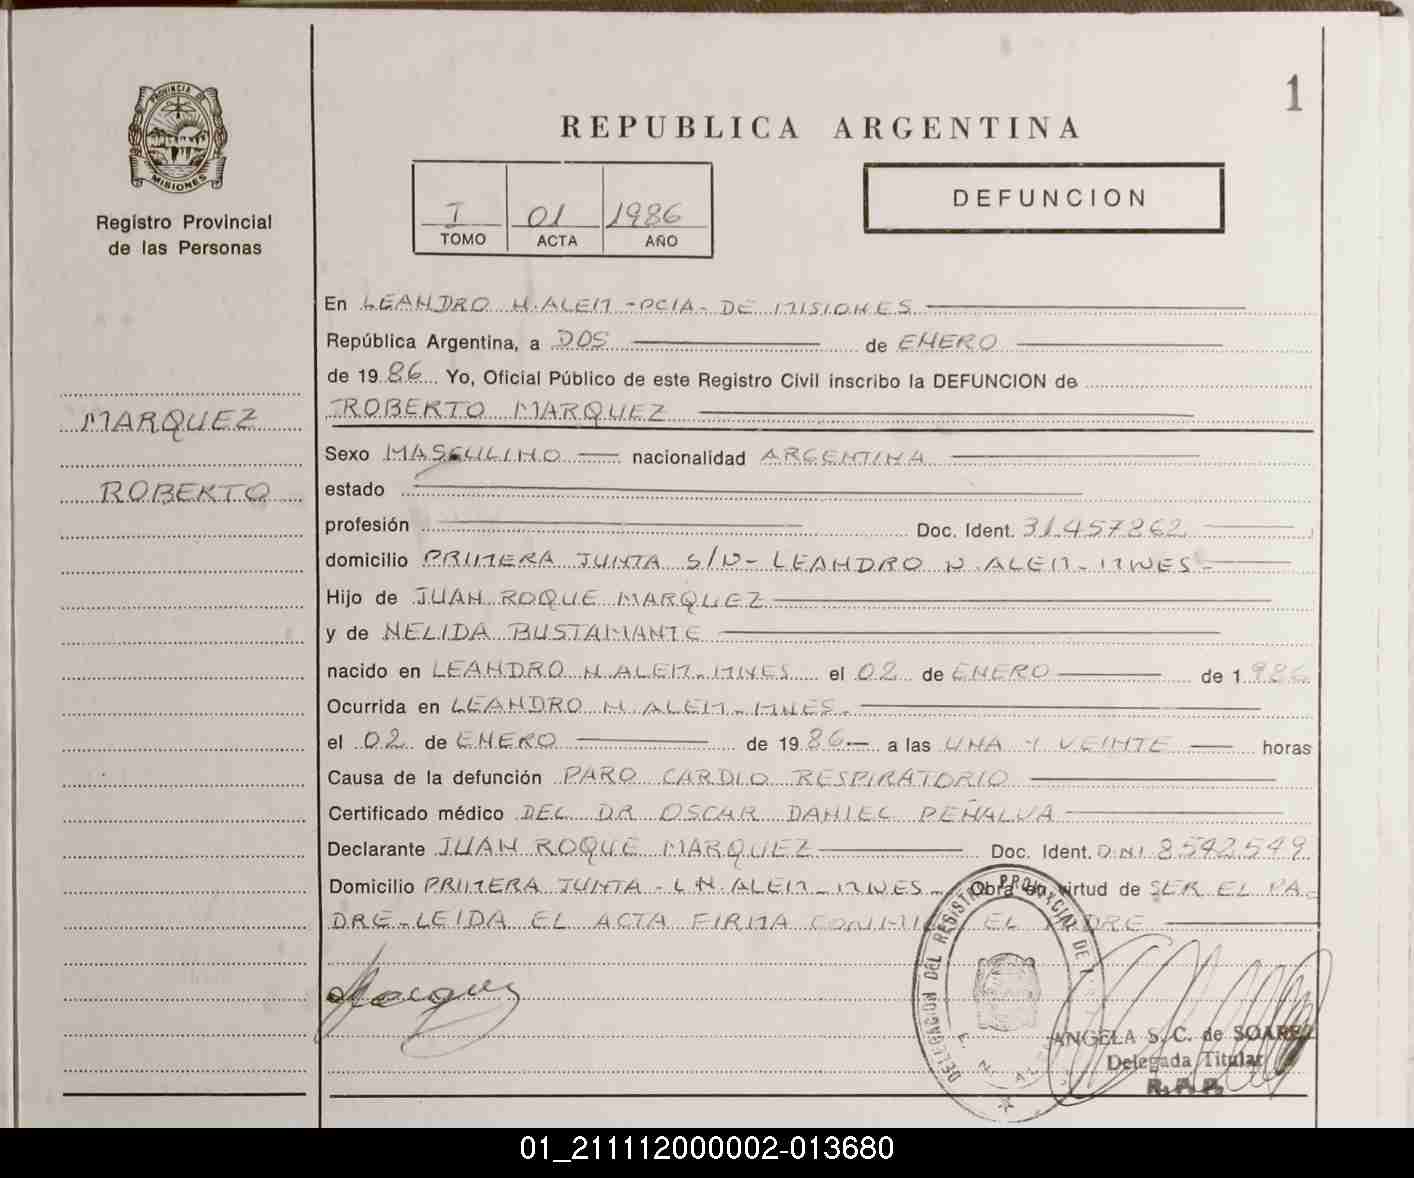 1
PROVINCIA DE
MISIONES
Registro Provincial
de las Personas
REPUBLICA ARGENTINA
I 01 1986
TOMO ACTA AÑO
DEFUNCION
MARQUEZ
ROBERTO
En LEANDRO N. ALEM - PCIA - DE MISIONES
República Argentina, a DOS de ENERO
de 1986 Yo, Oficial Público de este Registro Civil inscribo la DEFUNCION de
ROBERTO MARQUEZ
Sexo MASCULINO nacionalidad ARGENTINA
estado
profesión Doc. Ident. 31.457262
domicilio PRIMERA JUNTA S/N - LEANDRO N. ALEM - MNES -
Hijo de JUAN ROQUE MARQUEZ
y de NELIDA BUSTAMANTE
nacido en LEANDRO N. ALEM - MNES el 02 de ENERO de 1986
Ocurrida en LEANDRO N. ALEM - MNES -
el 02 de ENERO de 1986 a las UNA Y VEINTE horas
Causa de la defunción PARO CARDIO RESPIRATORIO
Certificado médico DEL DR OSCAR DANIEL PEÑALVA
Declarante JUAN ROQUE MARQUEZ Doc. Ident. D.N.I. 8542549
Domicilio PRIMERA JUNTA - L N. ALEM - MNES - Obra en virtud de SER EL PA-
DRE - LEIDA EL ACTA FIRMA CONMIGO EL PADRE
Marquez
DELEGACION DEL REGISTRO PROVINCIAL DE
N. ALEM
ANGELA S. C. de SOAREZ
Delegada Titular
R. P. P.
01_211112000002-013680